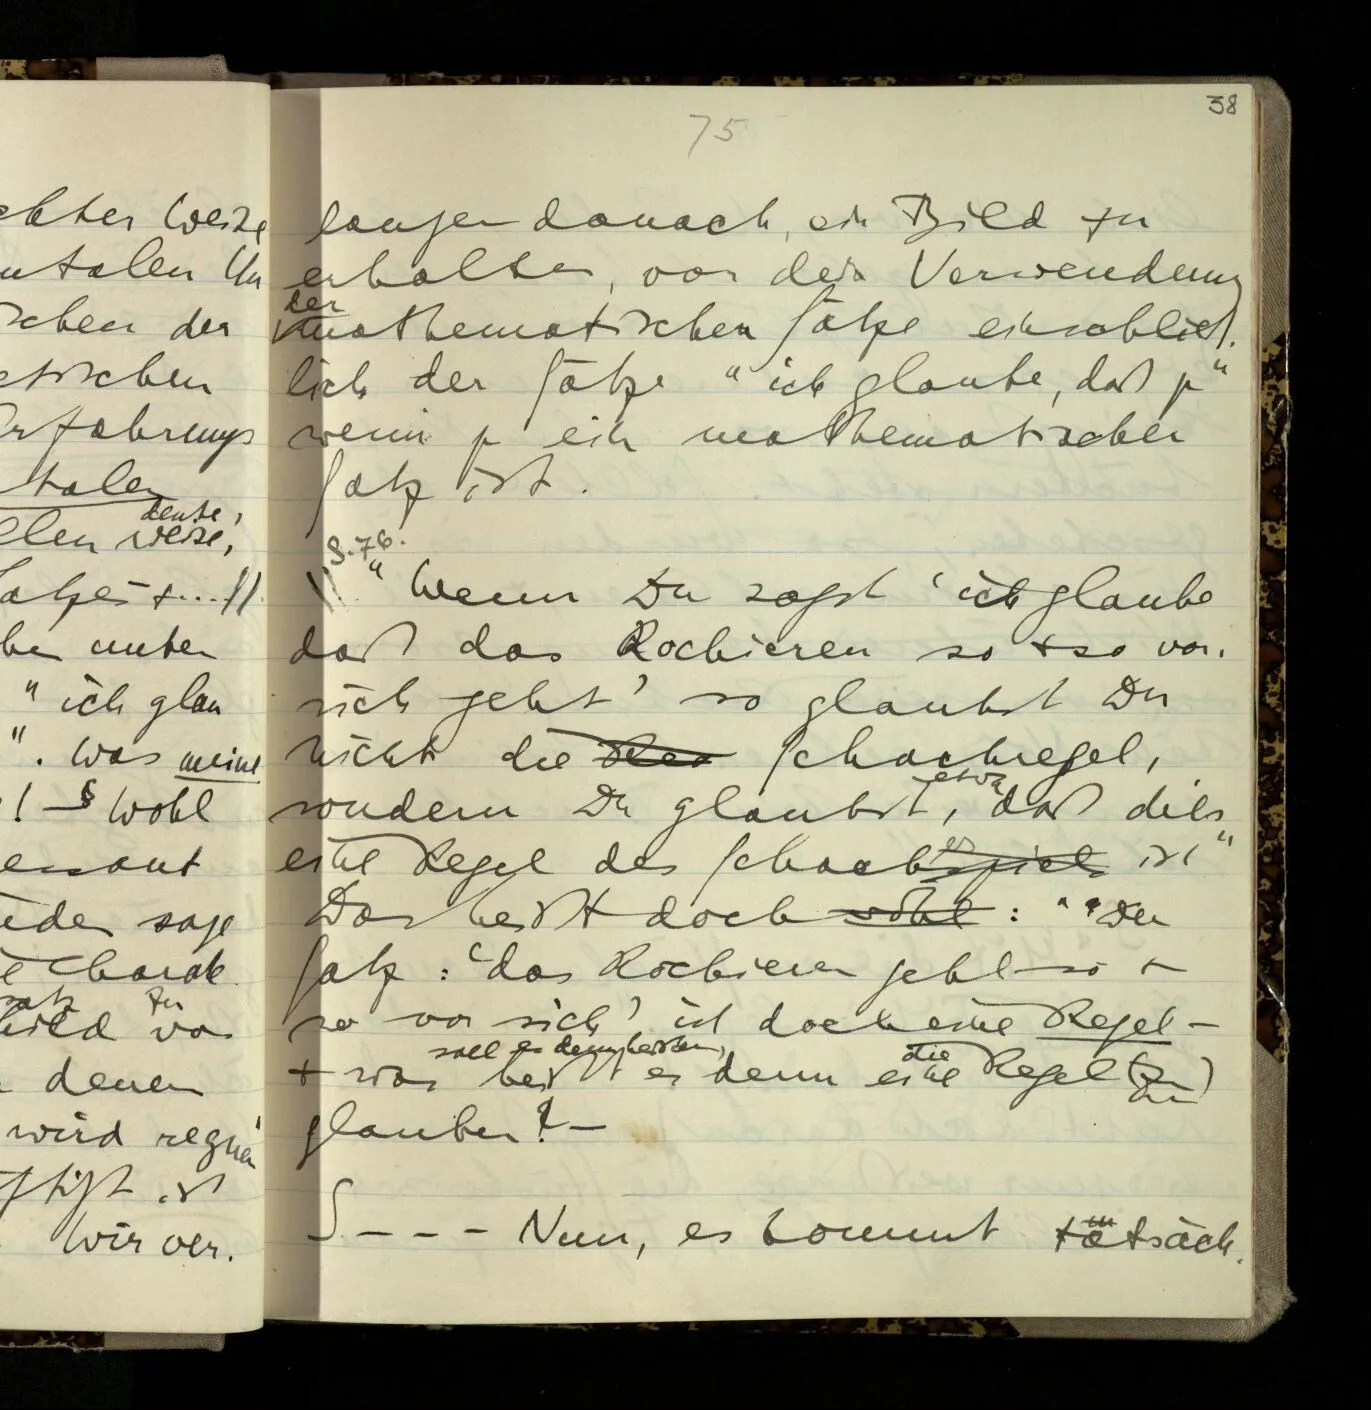 38
75
langen danach, ein Bild zu
erhalten, von der Verwendung
der
mathematischen Sätze einschließ-
lich der Sätze "ich glaube, daß p"
wenn p ein mathematischer
Satz ist.
S. 76.
"Wenn Du sagst 'ich glaube
daß das Rochieren so + so vor
sich geht' so glaubst Du
nicht die Schachregel,
etwa
sondern Du glaubst, daß dies
eine Regel des Schachspiels ist"
es
Das heißt doch wohl: "Der
Satz: 'das Rochieren geht so +
so vor sich' ist doch eine Regel –
soll es denn heißen,
die
+ was heißt es denn eine Regel (zu)
zu
glauben? –
S – – – Nun, es kommt tatsäch-
chter Weise
ntalen Un
schen der
etischen
Erfahrungs
talen
deute,
llen weise,
Satzes +...//
ben unter
"ich glau
". Was meine
! – § Wohl
essant
eder sage
e Charak
satz zu
bild vo
denen
wird
ist
Wir ver-